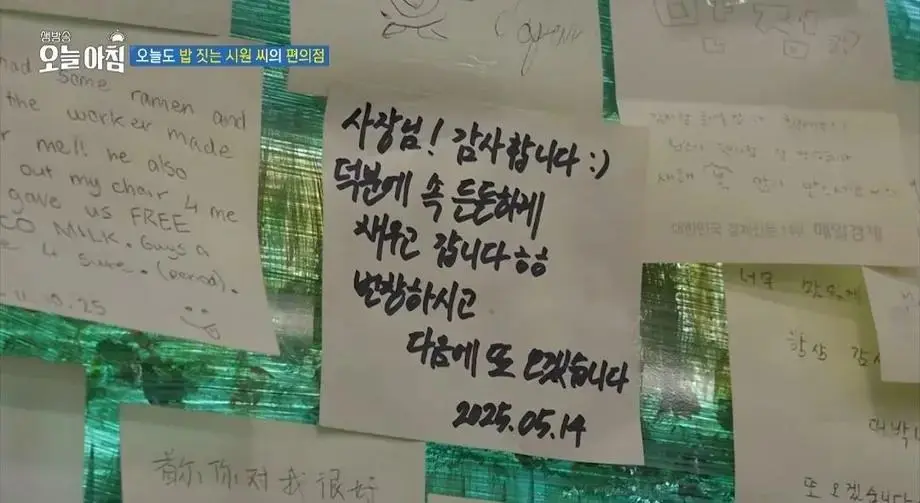 생방송
오늘 아침
오늘도 밥 짓는 시원 씨의 편의점
had some ramen and
the worker made
mell! he also
out my chair 4 me
gave us FREE
CO MILK. Guys a
4 sure. (period).
사장님! 감사합니다 :)
덕분에 속 든든하게
채우고 갑니다 ㅎㅎ
번창하시고
다음에 또 오겠습니다
2025.05.14
대한민국 경제신문 1위 매일경제
너무
항상 감사
대박
또 오겠습니다
首尔你对我很好